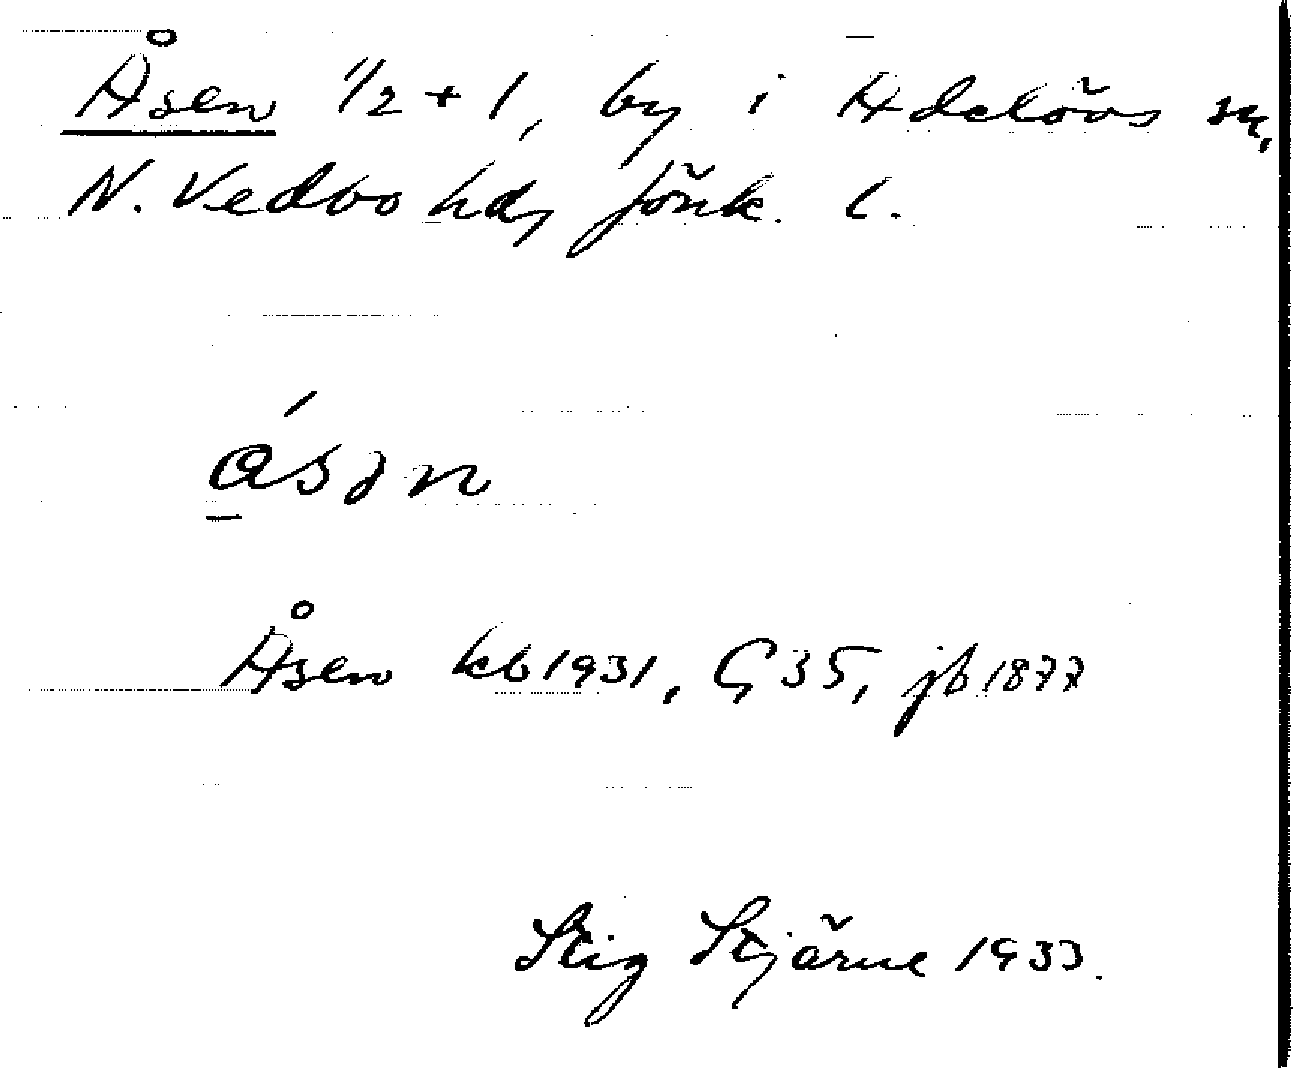 Åsen 1/2 + 1, by i Adelövs sn,
N. Vedbo hd, Jönk. l.
ásən
Åsen kb 1931, G 35, jb 1877
Stig Stjärne 1933.